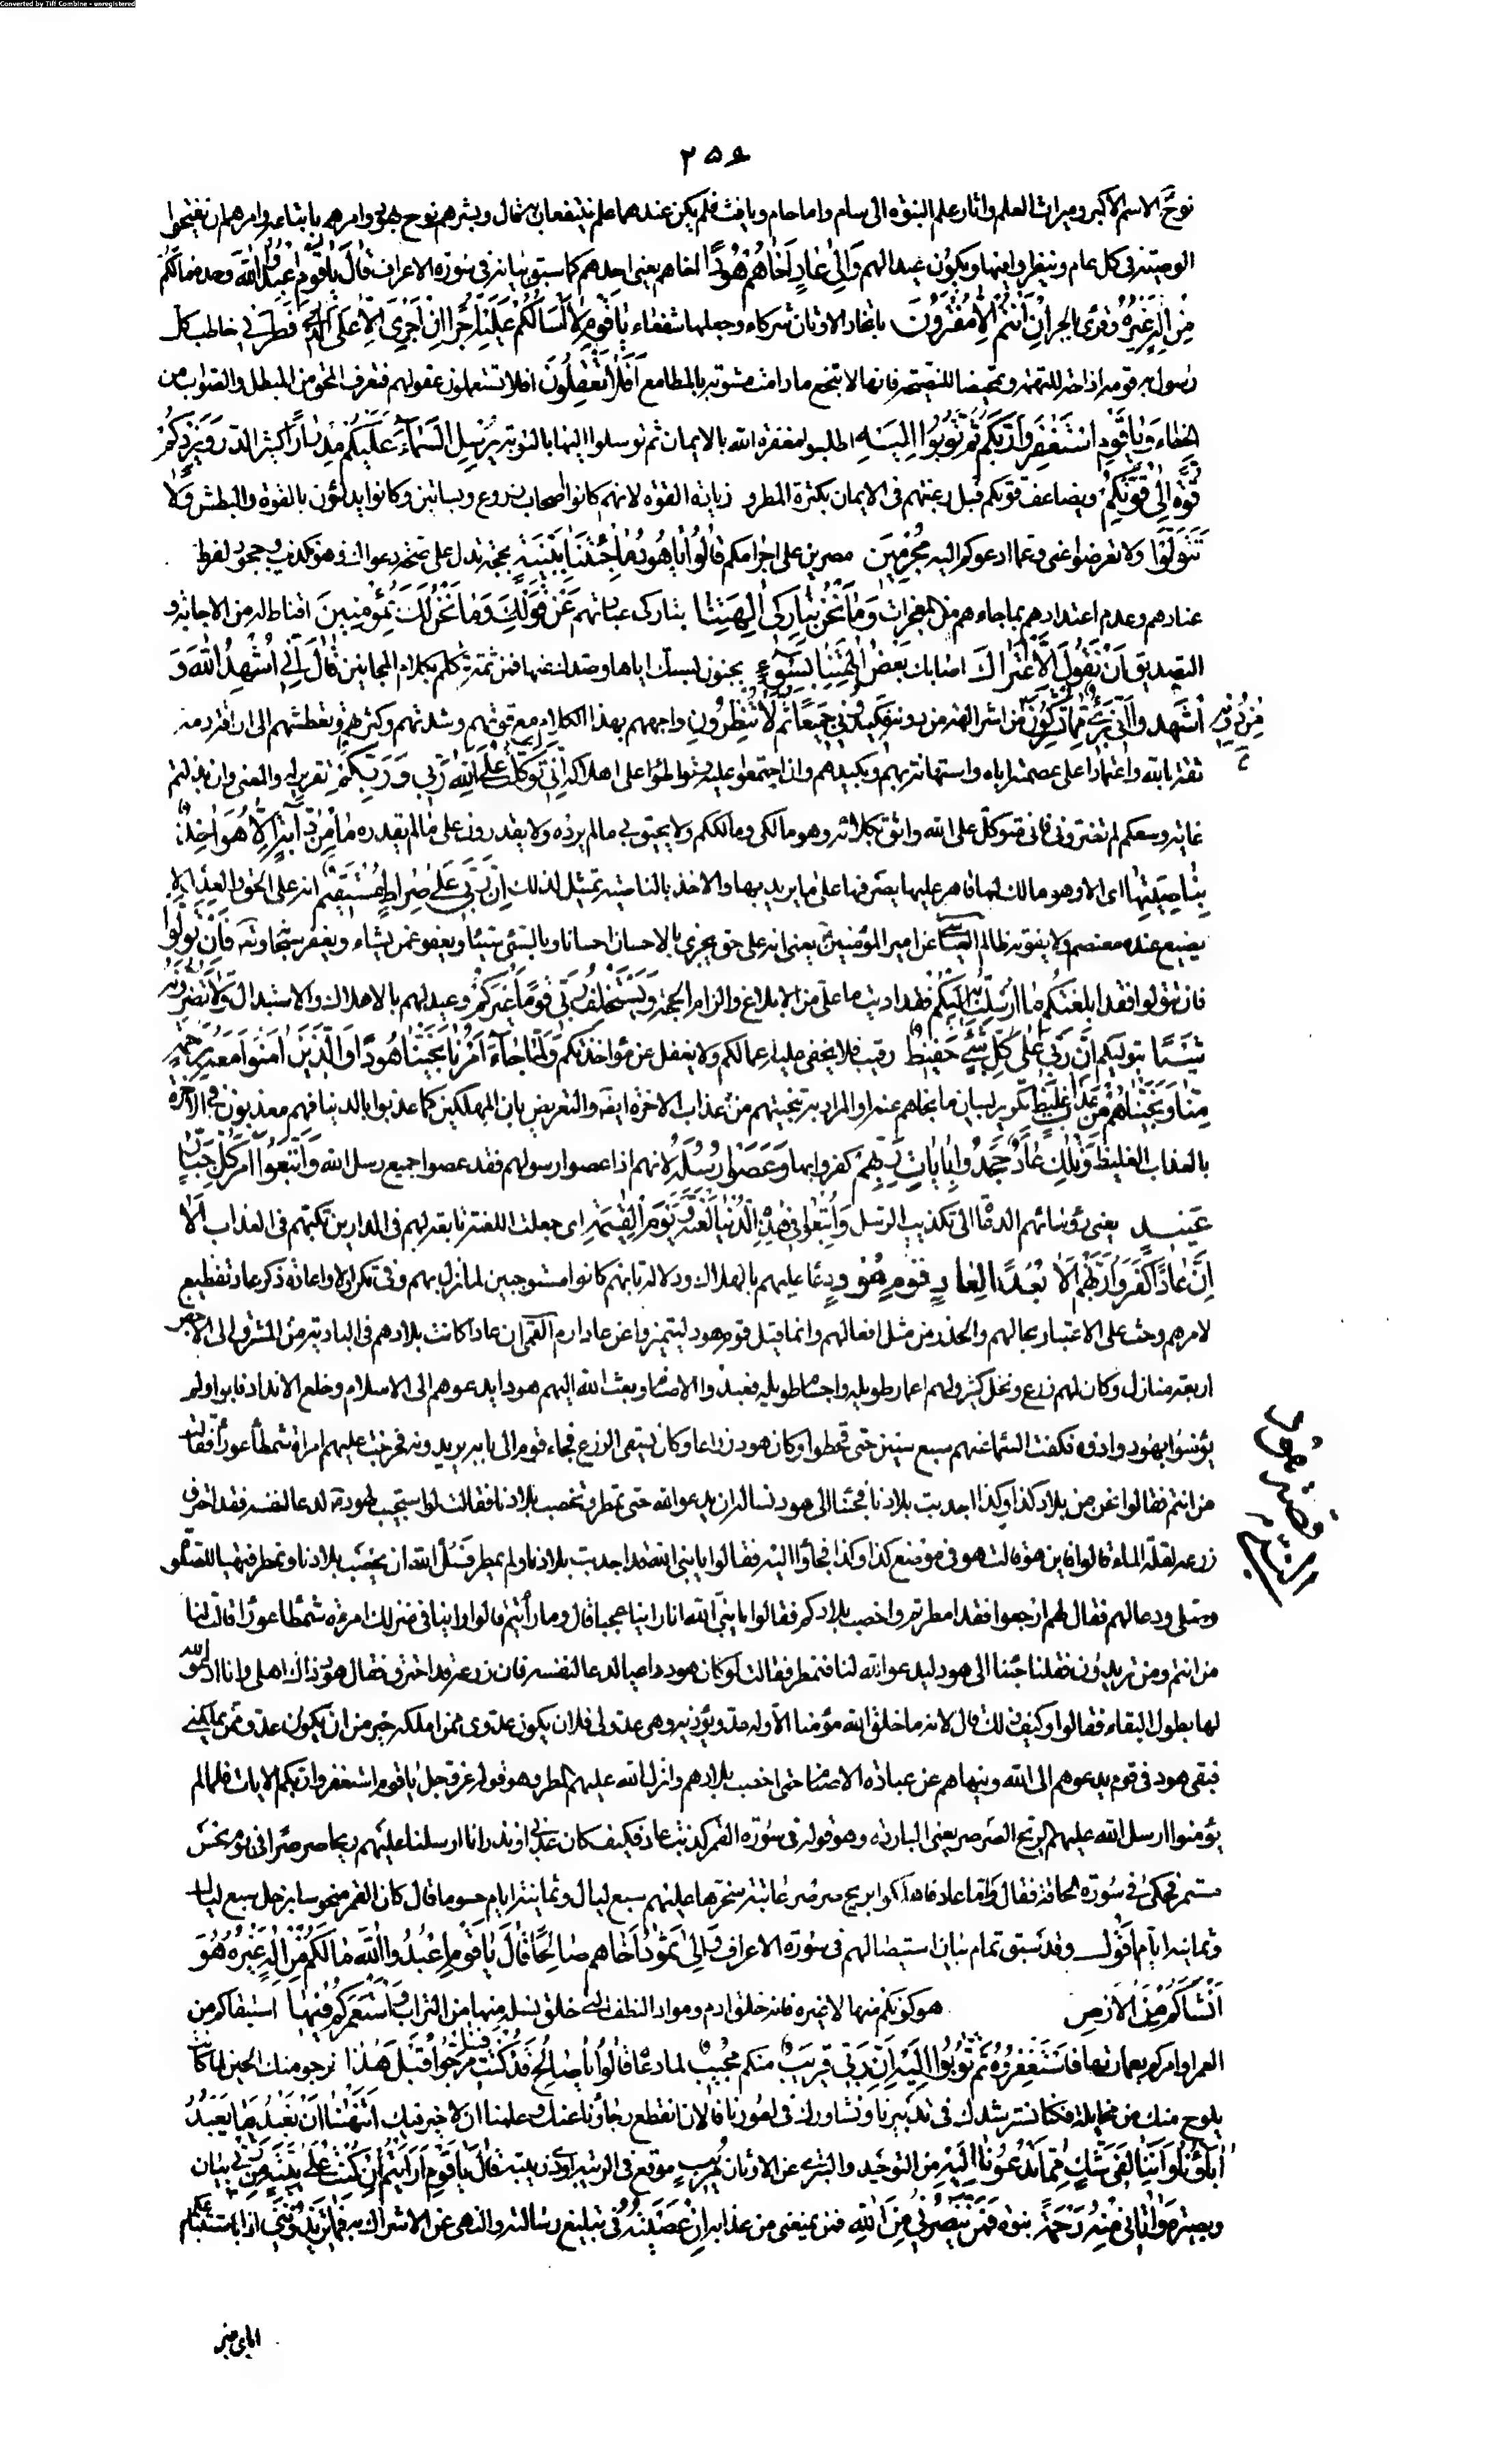 Converted by Tiff Combine - unregistered
٢٥٤
نوح الاسم الاكبر وميراث العلم واثار علم النبوة الى سام واما حام ويافث فلم يكن عندهما علم ينتفعان به قال وبشرهم نوح بهود وامرهم باتباعه وامرهم ان يفتحوا
الوصية في كل عام وينظروا فيها ويكون عيدا لهم وَاِلىٰ عادٍ اَخاهُمْ هُوداً اخاهم يعني احدهم كما سبق بيانه في سورة الاعراف قالَ يا قَوْمِ اعْبُدُوا اللهَ وحده ما لَكُمْ
مِنْ اِلهٍ غَيْرُهُ وقرئ بالجر اِنْ اَنْتُمْ اِلّا مُفْتَرُونَ باتخاذ الاوثان شركاء وجعلها شفعاء يا قَوْمِ لا اَسْئَلُكُمْ عَلَيْهِ اَجْراً اِنْ اَجْرِيَ اِلّا عَلَى الَّذي فَطَرَني خاطب كل
رسول به قومه ازاحة للتهمة وتمحيضا للنصيحة فانها لا تنجع ما دامت مشوبة بالمطامع اَفَلا تَعْقِلُونَ افلا تستعملون عقولهم فتعرف المحق من المبطل والصواب من
الخطاء وَيا قَوْمِ اسْتَغْفِرُوا رَبَّكُمْ ثُمَّ تُوبُوا اِلَيْهِ اطلبوا مغفرة الله بالايمان ثم توسلوا اليها بالتوبة يُرْسِلِ السَّماءَ عَلَيْكُمْ مِدْراراً كثير الدر وَيَزِدْكُمْ
قُوَّةً اِلىٰ قُوَّتِكُمْ ويضاعف قوتكم قيل رغبتهم في الايمان بكثرة المطر و زيادة القوة لانهم كانوا اصحاب زروع وبساتين وكانوا يدلّون بالقوة والبطش وَلا
تَتَوَلَّوْا ولا تعرضوا عني وعما ادعوكم اليه مُجْرِمِينَ مصرين على اجرامكم قالُوا يا هُودُ ما جِئْتَنا بِبَيِّنَةٍ بحجة تدل على صحة دعواك وهو كذب وجحود لفرط
عنادهم وعدم اعتدادهم بما جاءهم من المعجزات وَما نَحْنُ بِتارِكي آلِهَتِنا بتاركي عبادتهم عَنْ قَوْلِكَ وَما نَحْنُ لَكَ بِمُؤْمِنينَ اقناط له من الاجابة و
التصديق اِنْ نَقُولُ اِلَّا اعْتَراكَ اصابك بَعْضُ آلِهَتِنا بِسُوءٍ بجنون لسبّك اياها وصدك عنها فمن ثمة تتكلم بكلام المجانين قالَ اِنّي اُشْهِدُ اللهَ وَ
اشْهَدُوا اَنّي بَريءٌ مِمّا تُشْرِكُونَ من اشراكم الهة من دونه فَكيدُوني جَميعاً ثُمَّ لا تُنْظِرُونِ واجههم بهذا الكلام مع قوتهم وشدتهم وكثرتهم وتعطشهم الى اراقة دمه
مِنْ دُونِهِ
ثقة بالله واعتمادا على عصمته اياه واستهانة بهم وبكيدهم وان اجتمعوا عليه وتواطؤا على اهلاكه اِنّي تَوَكَّلْتُ عَلَى اللهِ رَبّي وَرَبِّكُمْ تقرير له والمعنى وان بذلتم
غاية وسعكم لم تضروني فاني متوكل على الله واثق بكلائته وهو مالكي ومالككم ولا يحيق بي ما لم يرده ولا يقدرون على ما لم يقدره ما مِنْ دابَّةٍ اِلّا هُوَ آخِذٌ
بِناصِيَتِها اي الا وهو مالك لها قاهر عليها يصرفها على ما يريد بها والاخذ بالناصية تمثيل لذلك اِنَّ رَبّي عَلى صِراطٍ مُسْتَقيمٍ انه على الحق والعدل لا
يضيع عنده معتصم ولا يفوته ظالم العياشي عن امير المؤمنين يعني انه على حق يجزي بالاحسان احسانا وبالسيئ سيئا ويعفو عمن يشاء ويغفر سبحانه وتعالى فَاِنْ تَوَلَّوْا
فان تتولوا فَقَدْ اَبْلَغْتُكُمْ ما اُرْسِلْتُ بِهِ اِلَيْكُمْ فقد اديت ما علي من الابلاغ والزام الحجة وَيَسْتَخْلِفُ رَبّي قَوْماً غَيْرَكُمْ وعيد لهم بالاهلاك والاستبدال وَلا تَضُرُّونَهُ
شَيْئاً بتوليكم اِنَّ رَبّي عَلى كُلِّ شَيْءٍ حَفيظٌ رقيب فلا يخفى عليه اعمالكم ولا يغفل عن مؤاخذتكم وَلَمّا جاءَ اَمْرُنا نَجَّيْنا هُوداً وَالَّذينَ آمَنُوا مَعَهُ بِرَحْمَةٍ
مِنّا وَنَجَّيْناهُمْ مِنْ عَذابٍ غَليظٍ تكرير لبيان ما نجاهم عنه او المراد به تنجيتهم من عذاب الاخرة ايضا والتعريض بان المهلكين كما عذبوا بالدنيا فهم معذبون في الاخرة
بالعذاب الغليظ وَتِلْكَ عادٌ جَحَدُوا بِآياتِ رَبِّهِمْ كفروا بها وَعَصَوْا رُسُلَهُ لانهم اذا عصوا رسولهم فقد عصوا جميع رسل الله وَاتَّبَعُوا اَمْرَ كُلِّ جَبّارٍ
عَنيدٍ يعني رؤسائهم الدعاة الى تكذيب الرسل وَاُتْبِعُوا في هذِهِ الدُّنْيا لَعْنَةً وَيَوْمَ الْقِيمَةِ اي جعلت اللعنة تابعة لهم في الدارين تكبهم في العذاب اَلا
اِنَّ عاداً كَفَرُوا رَبَّهُمْ اَلا بُعْداً لِعادٍ قَوْمِ هُودٍ دعا عليهم بالهلاك ودلالة بانهم كانوا مستوجبين لما نزل بهم وفي تكرير الا واعادة ذكر عاد تفظيع
لامرهم وحث على الاعتبار بحالهم والحذر من مثل افعالهم وانما قيل قوم هود ليتميزوا عن عاد ارم القمي ان عادا كانت بلادهم في البادية من المشرق الى الاجفر
اربعة منازل وكان لهم زرع ونخل كثير ولهم اعمار طويلة واجسام طويلة فعبدوا الاصنام وبعث الله اليهم هودا يدعوهم الى الاسلام وخلع الانداد فابوا ولم
يؤمنوا بهود واذوه فكفت السماء عنهم سبع سنين حتى قحطوا وكان هود زراعا وكان يسقي الزرع فجاء قوم الى بابه يريدونه فخرجت عليهم امراة شمطاء عوراء فقالت
من انتم فقالوا نحن من بلاد كذا وكذا اجدبت بلادنا فجئنا الى هود نساله ان يدعو الله حتى تمطر وتخصب بلادنا فقالت لو استجيب لهود لدعا لنفسه فقد احترق
زرعه لقلة الماء قالوا فاين هو قالت هو في موضع كذا وكذا فجاؤا اليه فقالوا يا نبي الله قد اجدبت بلادنا ولم يمطر فسل الله ان يخصب بلادنا وتمطر فتهيا للصلو
وصلى ودعا لهم فقال لهم ارجعوا فقد امطرتم واخصب بلادكم فقالوا يا نبي الله انا راينا عجبا قال وما رايتم قالوا راينا في منزلك امرءة شمطاء عوراء قالت لنا
من انتم ومن تريدون فقلنا جئنا الى هود ليدعو الله لنا فنمطر فقالت لو كان هود داعيا لدعا لنفسه فان زرعه قد احترق فقال هود ذاك اهلي وانا ادعو الله
لها بطول البقاء فقالوا وكيف ذلك قال لانه ما خلق الله مؤمنا الا وله عدو يؤذيه وهي عدوي فلان يكون عدوي ممن املكه خير من ان يكون عدوي ممن يملكني
فبقي هود في قومه يدعوهم الى الله وينهاهم عن عبادة الاصنام حتى اخصب بلادهم وانزل الله عليهم المطر وهو قوله عز وجل يا قوم استغفروا ربكم الايات فلما لم
يؤمنوا ارسل الله عليهم الريح الصرصر يعني الباردة وهو قوله في سورة القمر كذبت عاد فكيف كان عذابي ونذر انا ارسلنا عليهم ريحا صرصرا في يوم نحس
مستمر وحكى في سورة الحاقة فقال واما عاد فاهلكوا بريح صرصر عاتية سخرها عليهم سبع ليال وثمانية ايام حسوما قال كان القمر منحوسا بزحل سبع ليال
وثمانية ايام اقول وقد سبق تمام بيان استيصالهم في سورة الاعراف وَاِلىٰ ثَمُودَ اَخاهُمْ صالِحاً قالَ يا قَوْمِ اعْبُدُوا اللهَ ما لَكُمْ مِنْ اِلهٍ غَيْرُهُ هُوَ
اَنْشَاَكُمْ مِنَ الْاَرْضِ هو كونكم منها لا غيره فانه خلق ادم ومواد النطف التي خلق نسله منها من التراب وَاسْتَعْمَرَكُمْ فيها استبقاكم من
العمر او امركم بعمارتها فَاسْتَغْفِرُوهُ ثُمَّ تُوبُوا اِلَيْهِ اِنَّ رَبّي قَريبٌ منكم مُجيبٌ لمن دعا قالُوا يا صالِحُ قَدْ كُنْتَ فينا مَرْجُوّاً قَبْلَ هذا نرجو منك الخير لما كانت
يلوح منك من مخايله فكنا نسترشدك في تدابيرنا ونشاورك في امورنا فالان انقطع رجاؤنا عنك وعلمنا ان لا خير فيك اَتَنْهانا اَنْ نَعْبُدَ ما يَعْبُدُ
آباؤُنا وَاِنَّنا لَفي شَكٍّ مِمّا تَدْعُونا اِلَيْهِ من التوحيد والتبري عن الاوثان مُريبٍ موقع في الريبة او ذي ريبة قالَ يا قَوْمِ اَرَاَيْتُمْ اِنْ كُنْتُ عَلى بَيِّنَةٍ مِنْ رَبّي بيان
وبصيرة وَآتاني مِنْهُ رَحْمَةً نبوة فَمَنْ يَنْصُرُني مِنَ اللهِ فمن يمنعني من عذابه اِنْ عَصَيْتُهُ في تبليغ رسالته والنهي عن الاشراك به فَما تَزيدُونَني اذا باستتباعكم
قصة ثمود